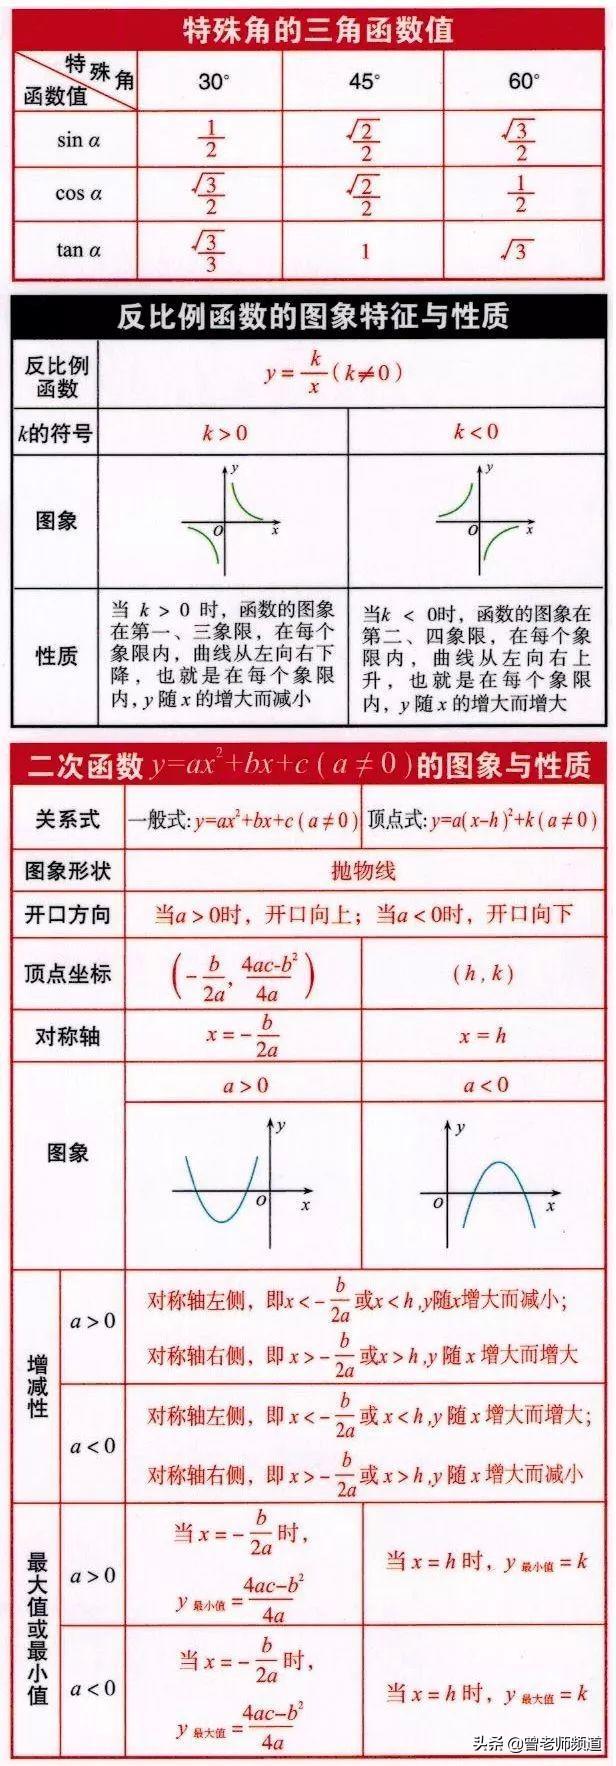 特殊角的三角函数值
特殊角 30° 45° 60°
函数值
sin α 1/2 √2/2 √3/2
cos α √3/2 √2/2 1/2
tan α √3/3 1 √3
反比例函数的图象特征与性质
反比例函数 y = k/x (k≠0)
k的符号 k > 0 k < 0
图象
y
O x
y
O x
性质
当 k > 0 时，函数的图象
在第一、三象限，在每个
象限内，曲线从左向右下
降，也就是在每个象限
内，y 随 x 的增大而减小
当k < 0时，函数的图象在
第二、四象限，在每个象
限内，曲线从左向右上
升，也就是在每个象限
内，y 随 x 的增大而增大
二次函数 y=ax²+bx+c ( a ≠ 0 ) 的图象与性质
关系式 一般式: y=ax²+bx+c ( a ≠ 0 ) 顶点式: y=a(x-h)²+k ( a ≠ 0 )
图象形状 抛物线
开口方向 当a > 0时，开口向上；当a < 0时，开口向下
顶点坐标 (-b/2a, 4ac-b²/4a) (h, k)
对称轴 x = -b/2a x = h
图象 a>0 a<0
y
O x
y
O x
增减性
a > 0
对称轴左侧，即x < -b/2a 或x < h ,y随x增大而减小；
对称轴右侧，即 x > -b/2a 或x > h ,y 随 x 增大而增大
a < 0
对称轴左侧，即 x < -b/2a 或 x < h ,y 随 x 增大而增大；
对称轴右侧，即 x > -b/2a 或 x > h ,y 随 x 增大而减小
最大值或最小值
a > 0
当 x = -b/2a 时，
y 最小值 = 4ac-b²/4a
当 x = h 时，y 最小值 = k
a < 0
当 x = -b/2a 时，
y 最大值 = 4ac-b²/4a
当 x = h 时，y 最大值 = k
头条 @曾老师频道